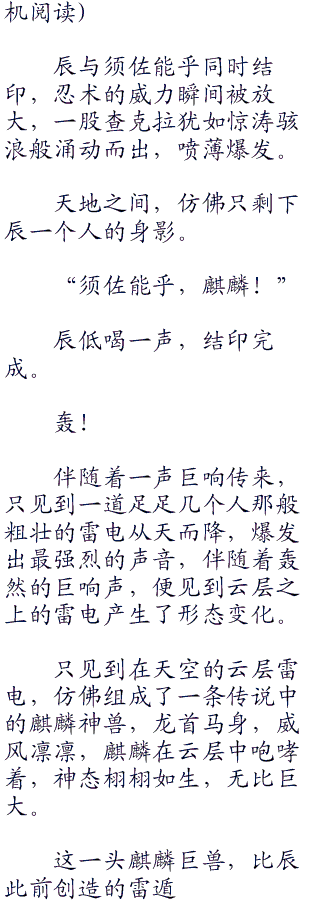 机阅读）
辰与须佐能乎同时结
印，忍术的威力瞬间被放
大，一股查克拉犹如惊涛骇
浪般涌动而出，喷薄爆发。
天地之间，仿佛只剩下
辰一个人的身影。
“须佐能乎，麒麟！”
辰低喝一声，结印完
成。
轰！
伴随着一声巨响传来，
只见到一道足足几个人那般
粗壮的雷电从天而降，爆发
出最强烈的声音，伴随着轰
然的巨响声，便见到云层之
上的雷电产生了形态变化。
只见到在天空的云层雷
电，仿佛组成了一条传说中
的麒麟神兽，龙首马身，威
风凛凛，麒麟在云层中咆哮
着，神态栩栩如生，无比巨
大。
这一头麒麟巨兽，比辰
此前创造的雷遁